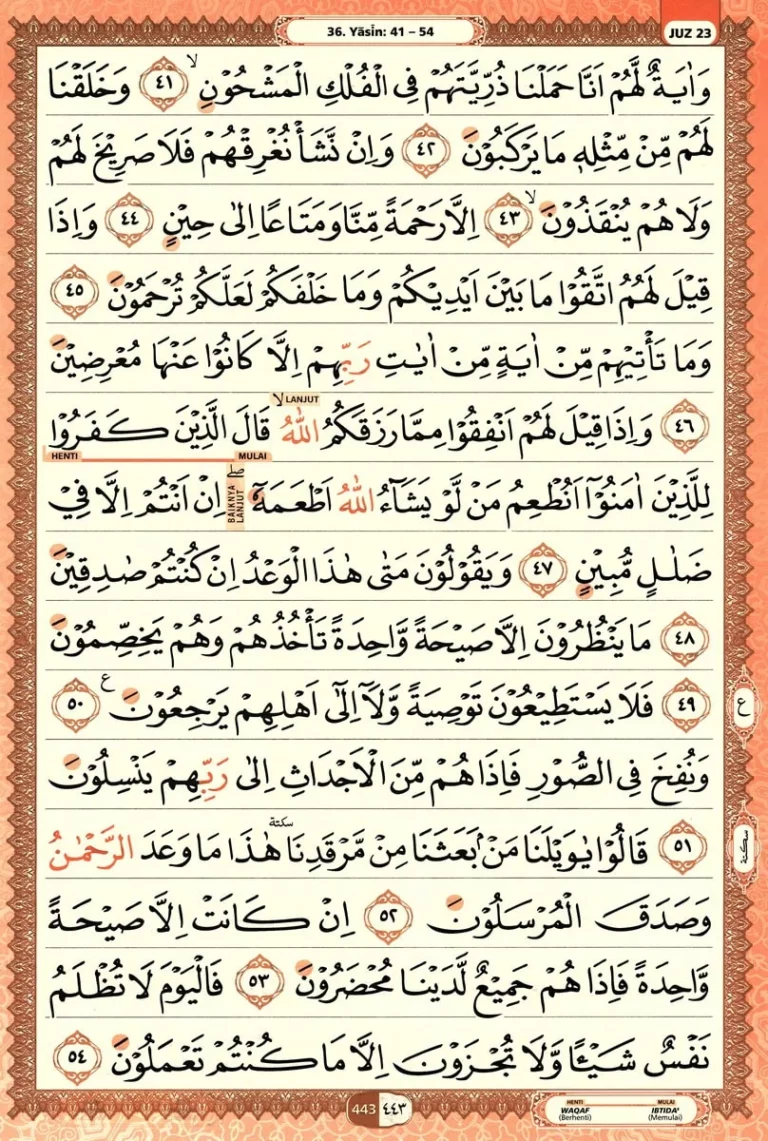 36. Yāsīn: 41 – 54
JUZ 23
وَاٰيَةٌ لَّهُمْ اَنَّا حَمَلْنَا ذُرِّيَّتَهُمْ فِى الْفُلْكِ الْمَشْحُوْنِۙ ٤١ وَخَلَقْنَا
لَهُمْ مِّنْ مِّثْلِهٖ مَا يَرْكَبُوْنَ ٤٢ وَاِنْ نَّشَأْ نُغْرِقْهُمْ فَلَا صَرِيْخَ لَهُمْ
وَلَا هُمْ يُنْقَذُوْنَۙ ٤٣ اِلَّا رَحْمَةً مِّنَّا وَمَتَاعًا اِلٰى حِيْنٍ ٤٤ وَاِذَا
قِيْلَ لَهُمُ اتَّقُوْا مَا بَيْنَ اَيْدِيْكُمْ وَمَا خَلْفَكُمْ لَعَلَّكُمْ تُرْحَمُوْنَ ٤٥
وَمَا تَأْتِيْهِمْ مِّنْ اٰيَةٍ مِّنْ اٰيٰتِ رَبِّهِمْ اِلَّا كَانُوْا عَنْهَا مُعْرِضِيْنَ
٤٦ وَاِذَا قِيْلَ لَهُمْ اَنْفِقُوْا مِمَّا رَزَقَكُمُ اللّٰهُ ۙ LANJUT قَالَ الَّذِيْنَ كَفَرُوْا
HENTI MULAI
لِلَّذِيْنَ اٰمَنُوْٓا اَنُطْعِمُ مَنْ لَّوْ يَشَاۤءُ اللّٰهُ اَطْعَمَهٗٓ ۖ BAIKNYA LANJUT اِنْ اَنْتُمْ اِلَّا فِيْ
ضَلٰلٍ مُّبِيْنٍ ٤٧ وَيَقُوْلُوْنَ مَتٰى هٰذَا الْوَعْدُ اِنْ كُنْتُمْ صٰدِقِيْنَ
٤٨ مَا يَنْظُرُوْنَ اِلَّا صَيْحَةً وَّاحِدَةً تَأْخُذُهُمْ وَهُمْ يَخِصِّمُوْنَ
٤٩ فَلَا يَسْتَطِيْعُوْنَ تَوْصِيَةً وَّلَآ اِلٰٓى اَهْلِهِمْ يَرْجِعُوْنَ ع ٥٠
ع
وَنُفِخَ فِى الصُّوْرِ فَاِذَا هُمْ مِّنَ الْاَجْدَاثِ اِلٰى رَبِّهِمْ يَنْسِلُوْنَ
٥١ قَالُوْا يٰوَيْلَنَا مَنْۢ بَعَثَنَا مِنْ مَّرْقَدِنَا سكتة هٰذَا مَا وَعَدَ الرَّحْمٰنُ
سكتة
وَصَدَقَ الْمُرْسَلُوْنَ ٥٢ اِنْ كَانَتْ اِلَّا صَيْحَةً
وَّاحِدَةً فَاِذَا هُمْ جَمِيْعٌ لَّدَيْنَا مُحْضَرُوْنَ ٥٣ فَالْيَوْمَ لَا تُظْلَمُ
نَفْسٌ شَيْـًٔا وَّلَا تُجْزَوْنَ اِلَّا مَا كُنْتُمْ تَعْمَلُوْنَ ٥٤
443 ٤٤٣
HENTI MULAI
WAQAF IBTIDA'
(Berhenti) (Memulai)